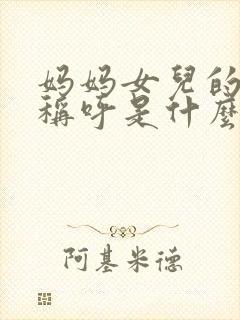 妈妈女兒的
稱呼是什麼
阿基米德